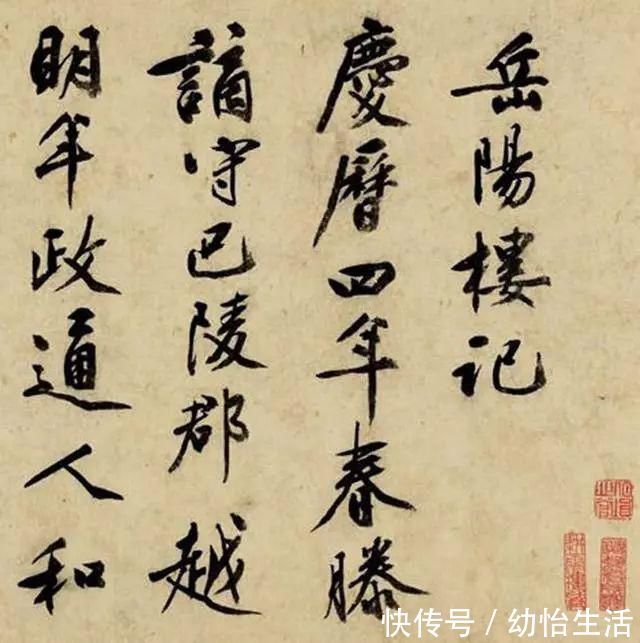 岳陽樓記
慶曆四年春滕
謫守巴陵郡越
明年政通人和
快传号 / 幼怡生活